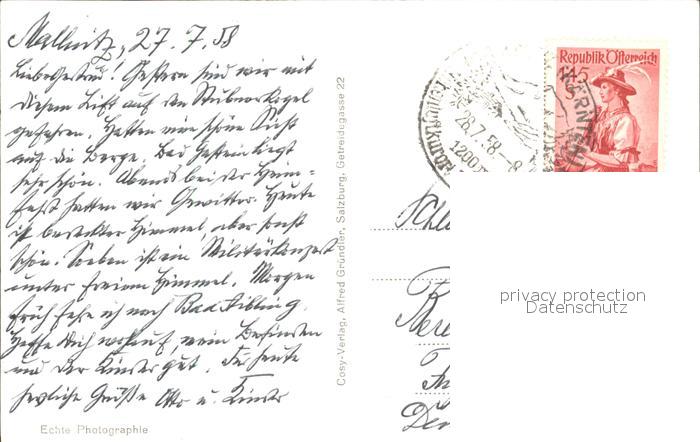 Mallnitz, 27.7.58
Liebe Gertrud! Gestern sind wir mit
diesem Lift auf den Stubnerkogel
gefahren. Hatten eine schöne Sicht
auf die Berge. Bad Gastein liegt
sehr schön. Abends bei der Heim-
fahrt hatten wir Gewitter. Heute
ist bedeckter Himmel, aber sonst
schön. Soeben ist ein Militärkonzert
unter freiem Himmel. Morgen
früh fahre ich nach Bad Aibling.
Hoffe Dich wohlauf, mein Befinden
und der Kinder gut. Für heute
herzliche Grüße Otto u. Kinder
Echte Photographie
Cosy-Verlag, Alfred Gründler, Salzburg, Getreidegasse 22
Republik Österreich
1.45
S
28.7.58-8
1200
KÄRNTEN
privacy protection
Datenschutz